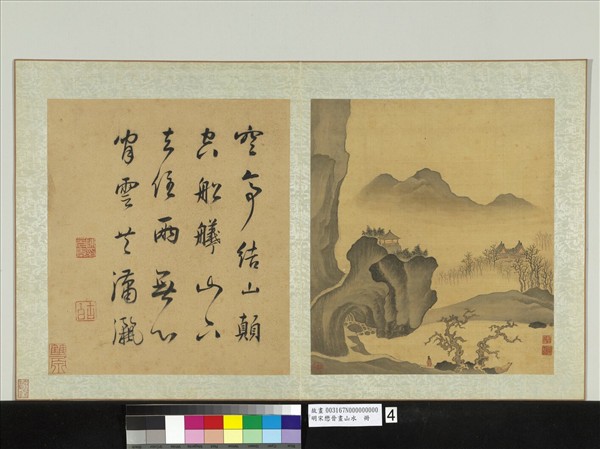 空亭結山顛
船艤山下
去住兩無心
雲共瀟灑
故畫 003167N000000000
明宋懋晉畫山水 冊
4